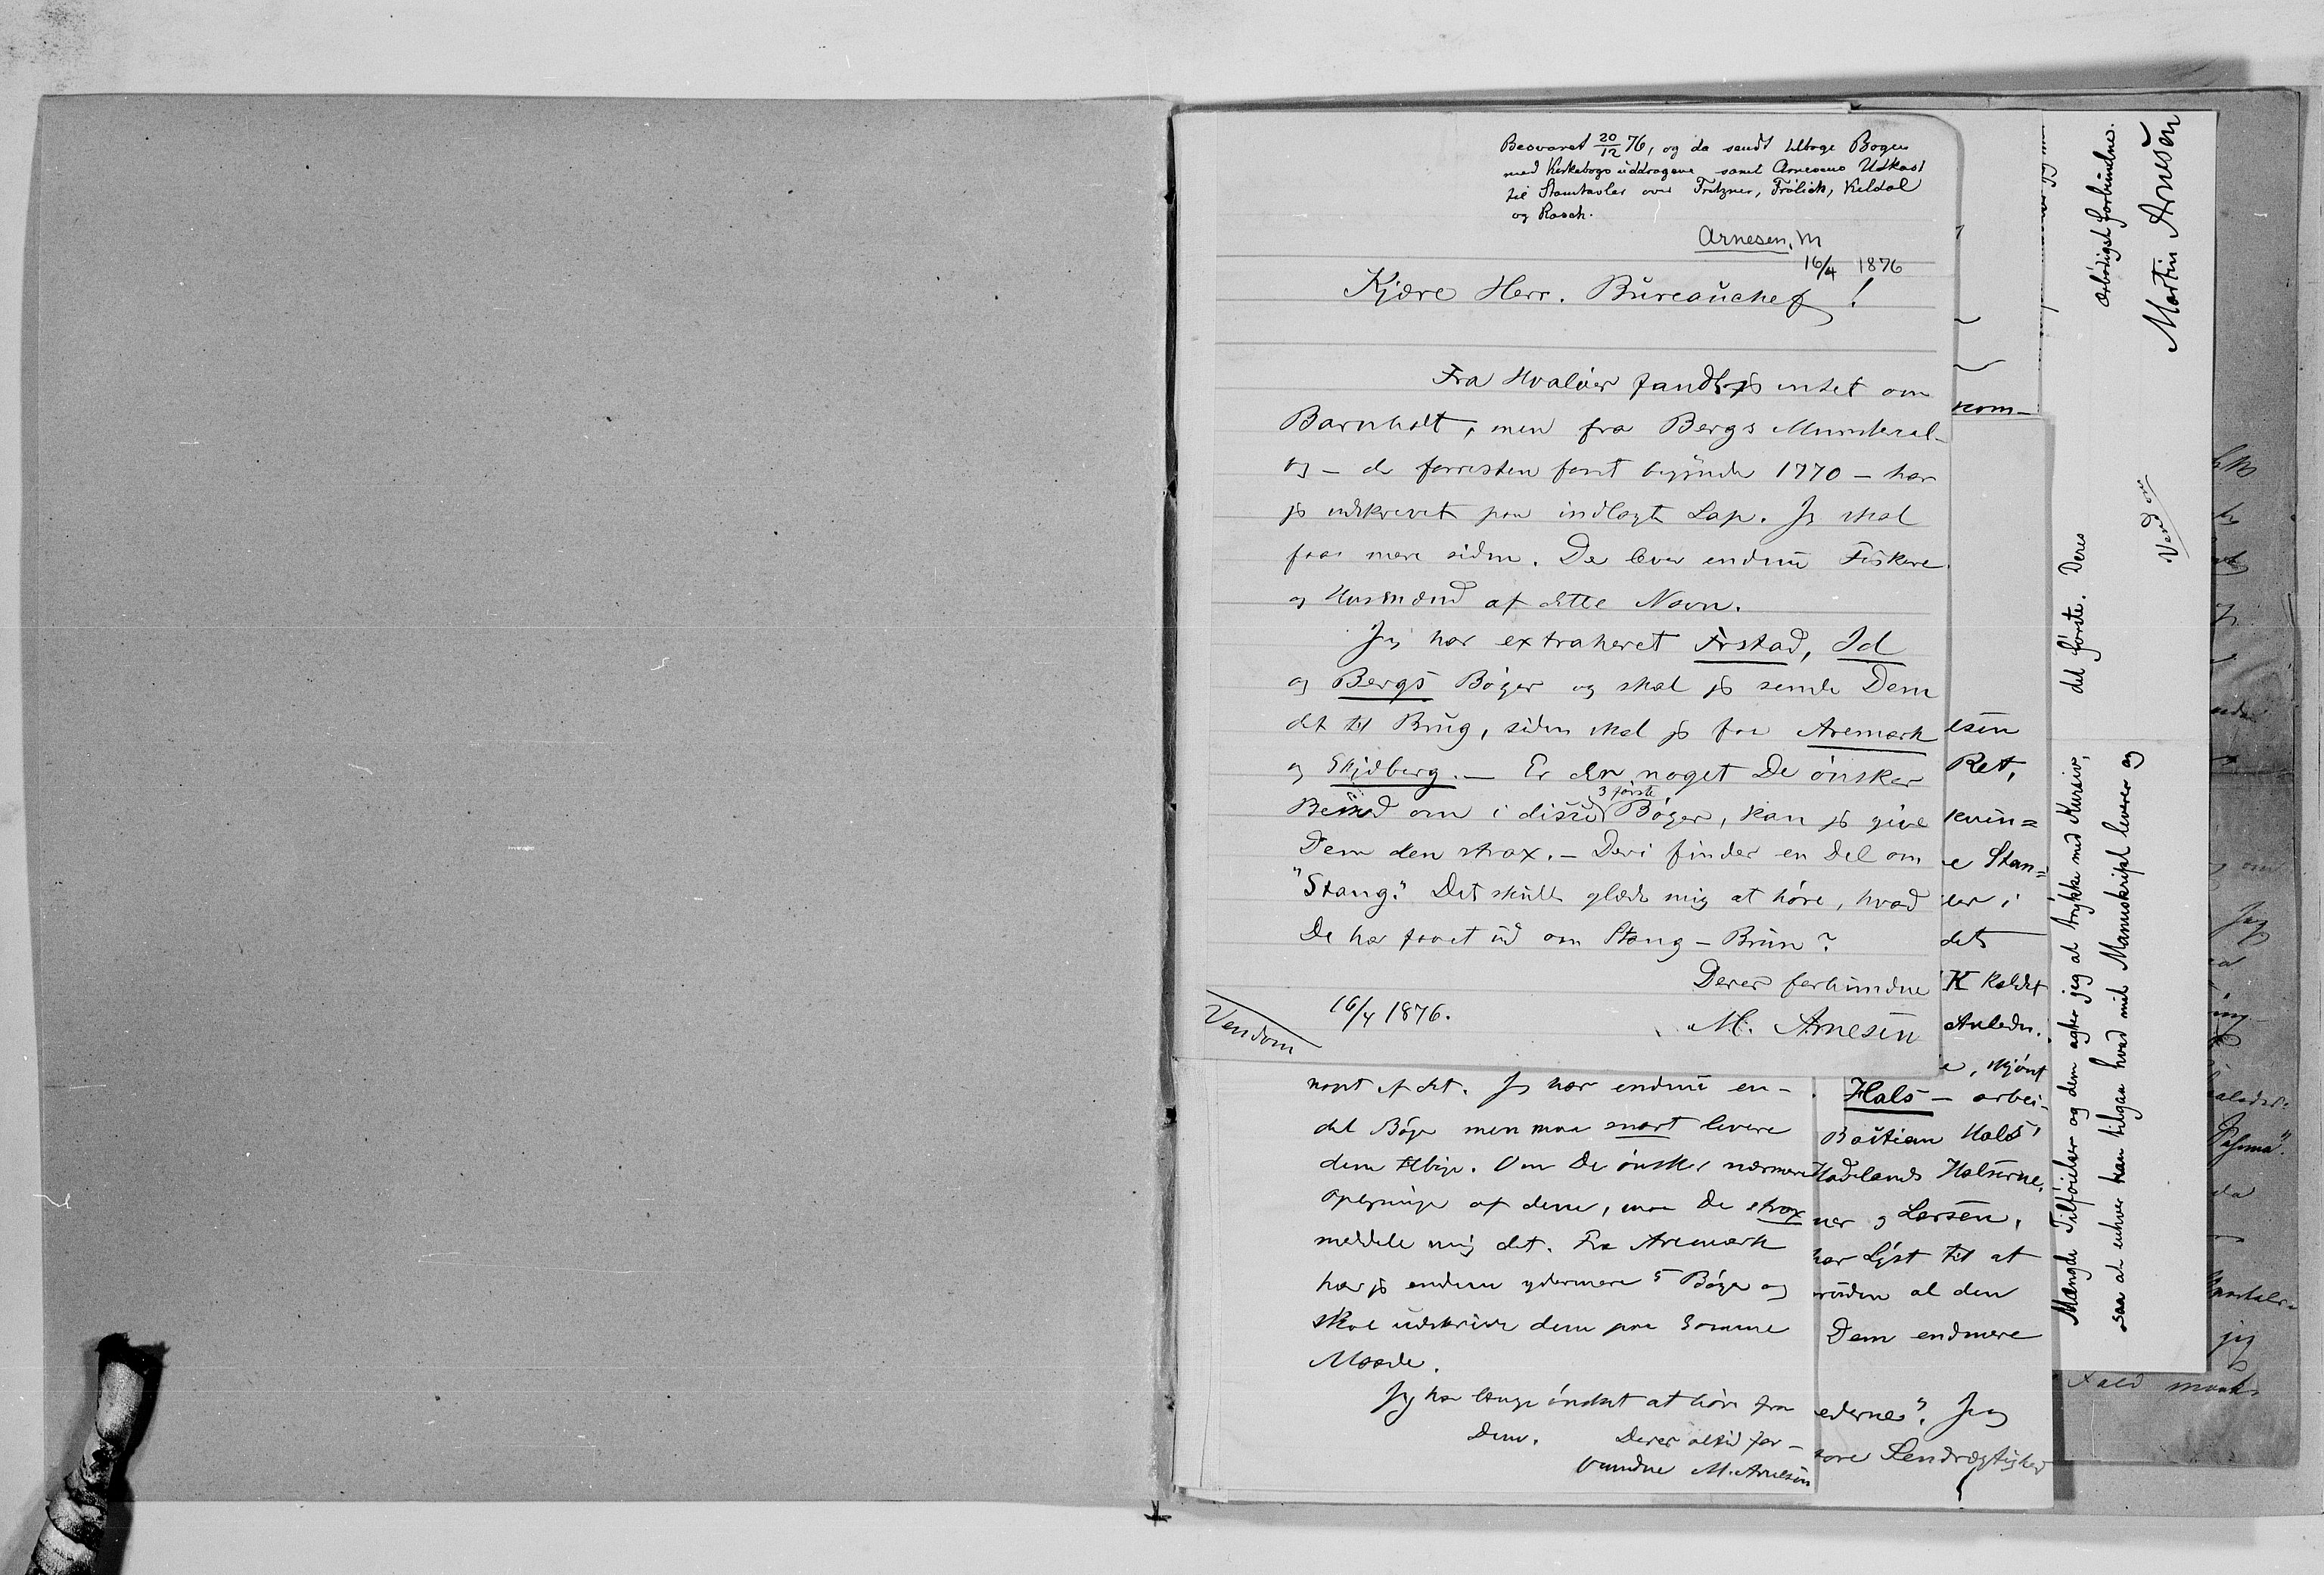 Besvaret 20/12 76, og da sendt tilbage Bogen
med Kirkebogsuddragene samt Arnesens Udkast
til Stamtavler over Fritzner, Frölich, Keldal
og Rasch.
Arnesen, M
16/4 1876
Kjære Herr. Bureauchef!
Fra Hvaløer fandt jeg intet om
Barnholt, men fra Bergs Ministerial-
og – de forresten først begynde 1770 – har
jeg udskrevet paa indlagte Lap. Jeg skal
faae mere siden. De lever endnu Fiskere
og Husmænd af dette Navn.
Jeg har extraheret Id
og Bergs Bøger og skal jeg sende Dem
det til Brug, siden skal jeg faa Aremark
og Skjeberg. – Er der noget De ønsker
3 første
Beskd om i disse Bøger, kan jeg give
Dem den strax. – Deri findes en Del om
"Stang." Det skulle glæde mig at høre, hvad
De har faaet ud om Stang – Brun?
Deres forbundne
16/4 1876.
M. Arnesen
Vend om
noget af det. Jeg har endnu en-
del Bøger men maa snart levere
dem tilbage. Om De ønsker nærmere
af dem, maa De strax
meddele mig det. Fra Aremark
har jeg endnu ydermere 5 Bøger og
skal udskrive dem paa samme
Maade.
Jeg har længe ønsket at høre fra
Dem. Deres altid for-
bundne M. Arnesen
kom-
esen
Ret,
kvin=
e Stan=
ler i
det
K kaldet
Anledn.
e, skjønt
Hals – arbei-
Bastian Hals'
Hadelands Halserne,
ner og Larsen,
har Lyst til at
al den
Dem endmere
edernes". Jeg
tore Sendrægtighed
Mængde Tilføielser og dem agter jeg at trykke med Kursiv,
saa at enhver kan tilgaa hvad mit Manuskript leverer og
det første. Deres
ærbødigst forbundne.
Martin Arnesen
Vend om
om
Jeg
da
jeg